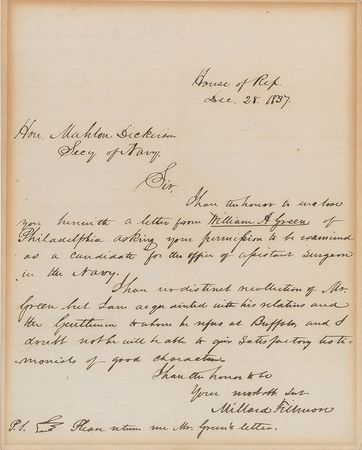 House of Rep.
Dec. 28. 1837.
Hon. Mahlon Dickerson
Secy of Navy,
Sir,
I have the honor to enclose
you herewith a letter from William A Green of
Philadelphia asking your permission to be examined
as a candidate for the office of assistant surgeon
in the Navy.
I have no distinct recollection of Mr.
Green but I am acquainted with his relatives and
the Gentlemen to whom he refers at Buffalo, and I
doubt not he will be able to give satisfactory testi-
monials of good character.
I have the honor to be
Your most obt Svt
Millard Fillmore
P.S. Please return me Mr. Green's letter.